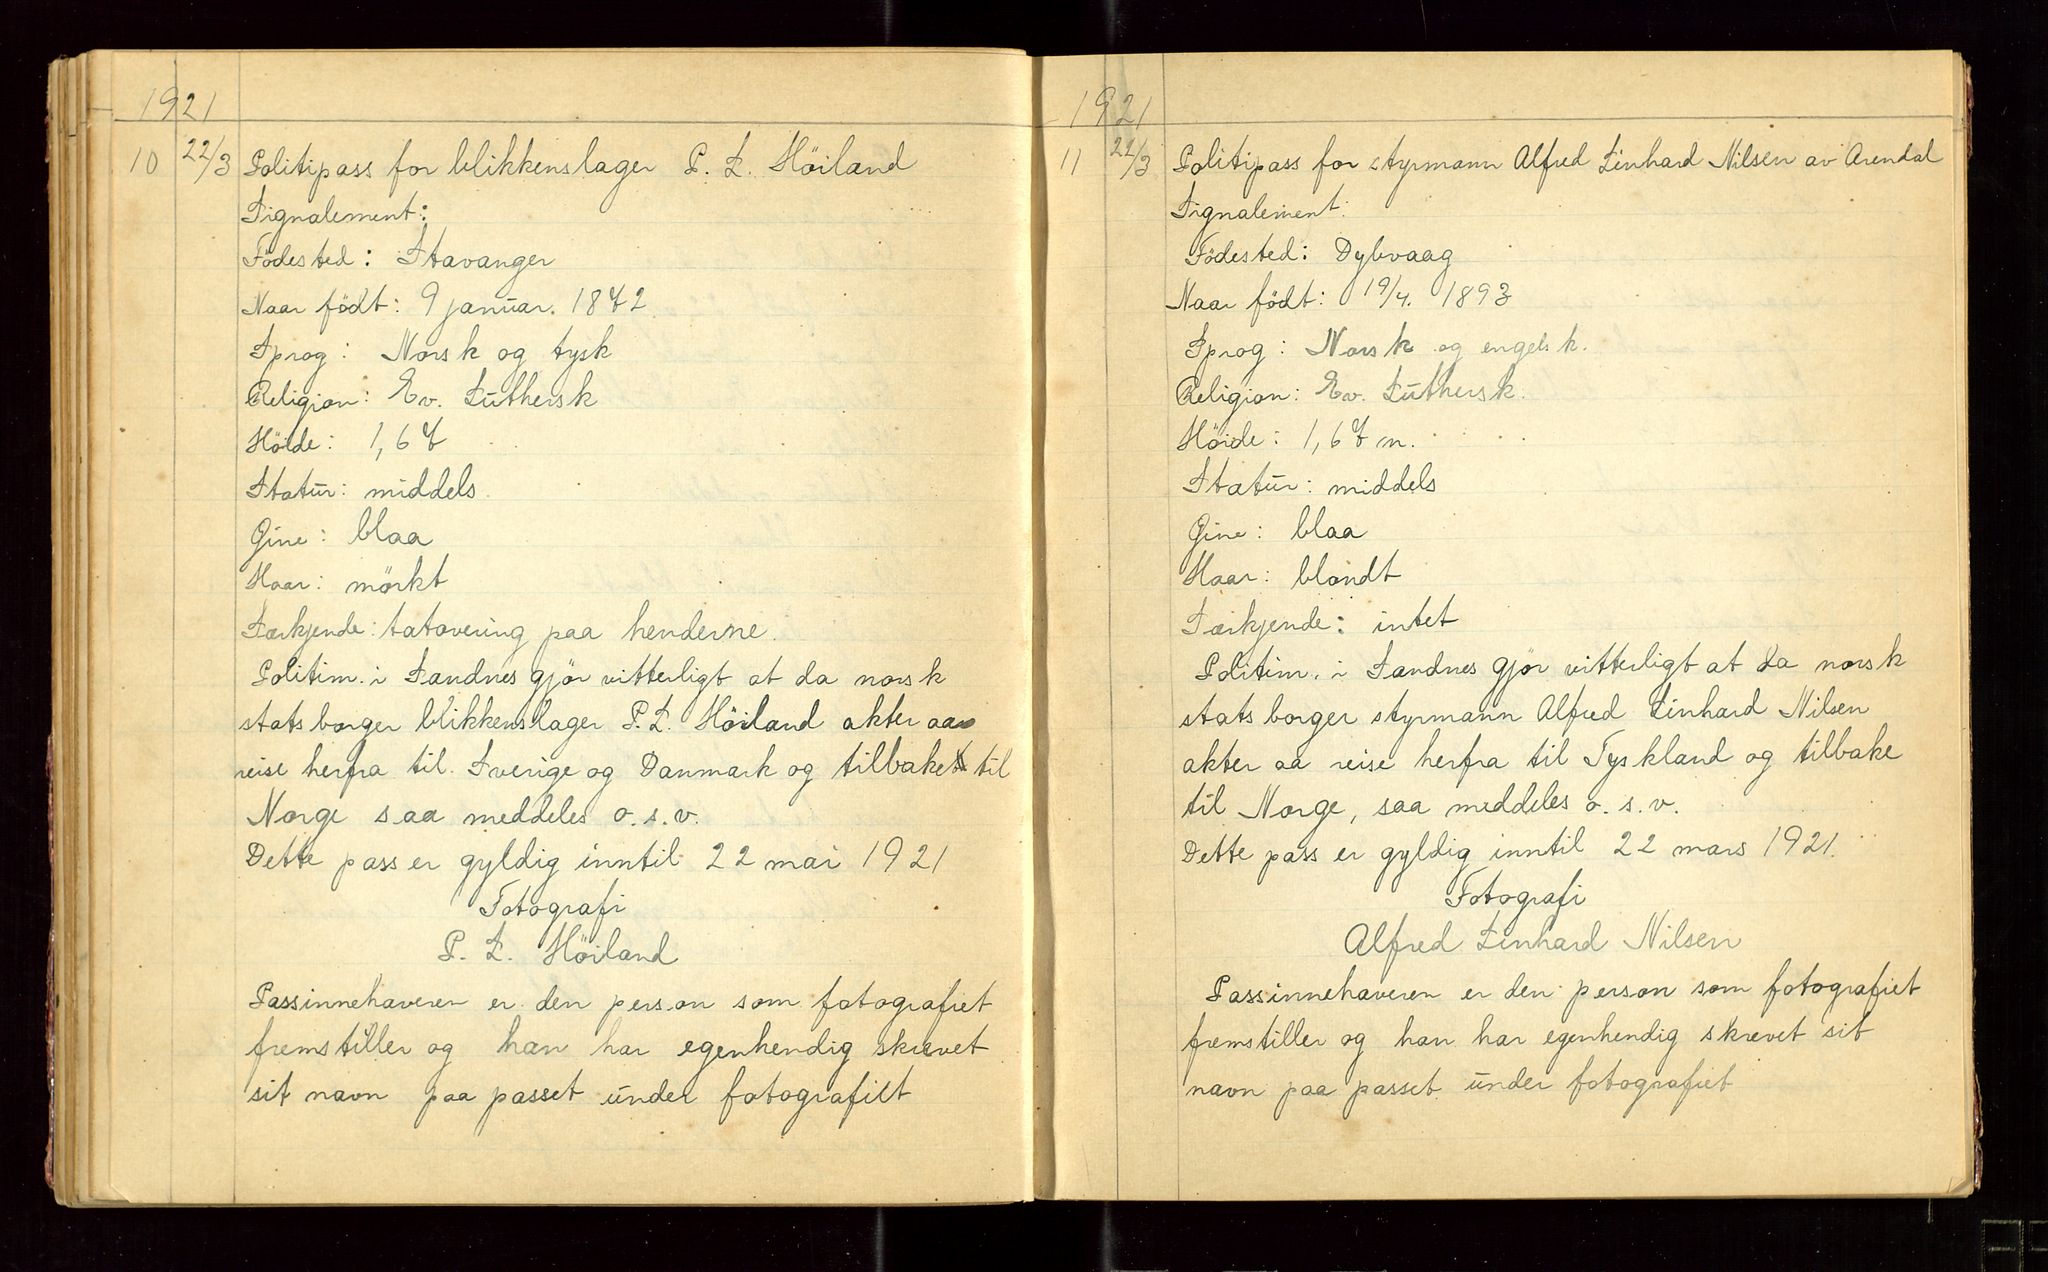 1921
10 22/3 Politipass for blikkenslager P. L. Höiland
Signalement:
Födested: Stavanger
Naar födt: 9 januar. 1872
Sprog: Norsk og tysk
Religion: Ev. Luthersk
Höide: 1,67
Statur: middels
Öine: blaa
Haar: mörkt
Særkjende: tatovering paa henderne.
Politim. i Sandnes gjör vitterligt at da norsk
statsborger blikkenslager P. L. Höiland akter aa
reise herfra til Sverige og Danmark og tilbake til
Norge saa meddeles o.s.v.
Dette pass er gyldig inntil 22 mai 1921
Fotografi
P. L. Höiland
Passinnehaveren er den person som fotografiet
fremstiller og han har egenhendig skrevet
sit navn paa passet under fotografiet
1921
11 22/3 Politipass for styrmann Alfred Linhard Nilsen av Arendal
Signalement:
Födested: Dybvaag
Naar födt: 19/4. 1893
Sprog: Norsk og engelsk.
Religion: Ev. Luthersk.
Höide: 1,67 m.
Statur: middels
Öine: blaa
Haar: blondt
Særkjende: intet
Politim. i Sandnes gjör vitterligt at da norsk
statsborger styrmann Alfred Linhard Nilsen
akter aa reise herfra til Tyskland og tilbake
til Norge, saa meddeles o.s.v.
Dette pass er gyldig inntil 22 mars 1921.
Fotografi
Alfred Linhard Nilsen
Passinnehaveren er den person som fotografiet
fremstiller og han har egenhendig skrevet sit
navn paa passet under fotografiet